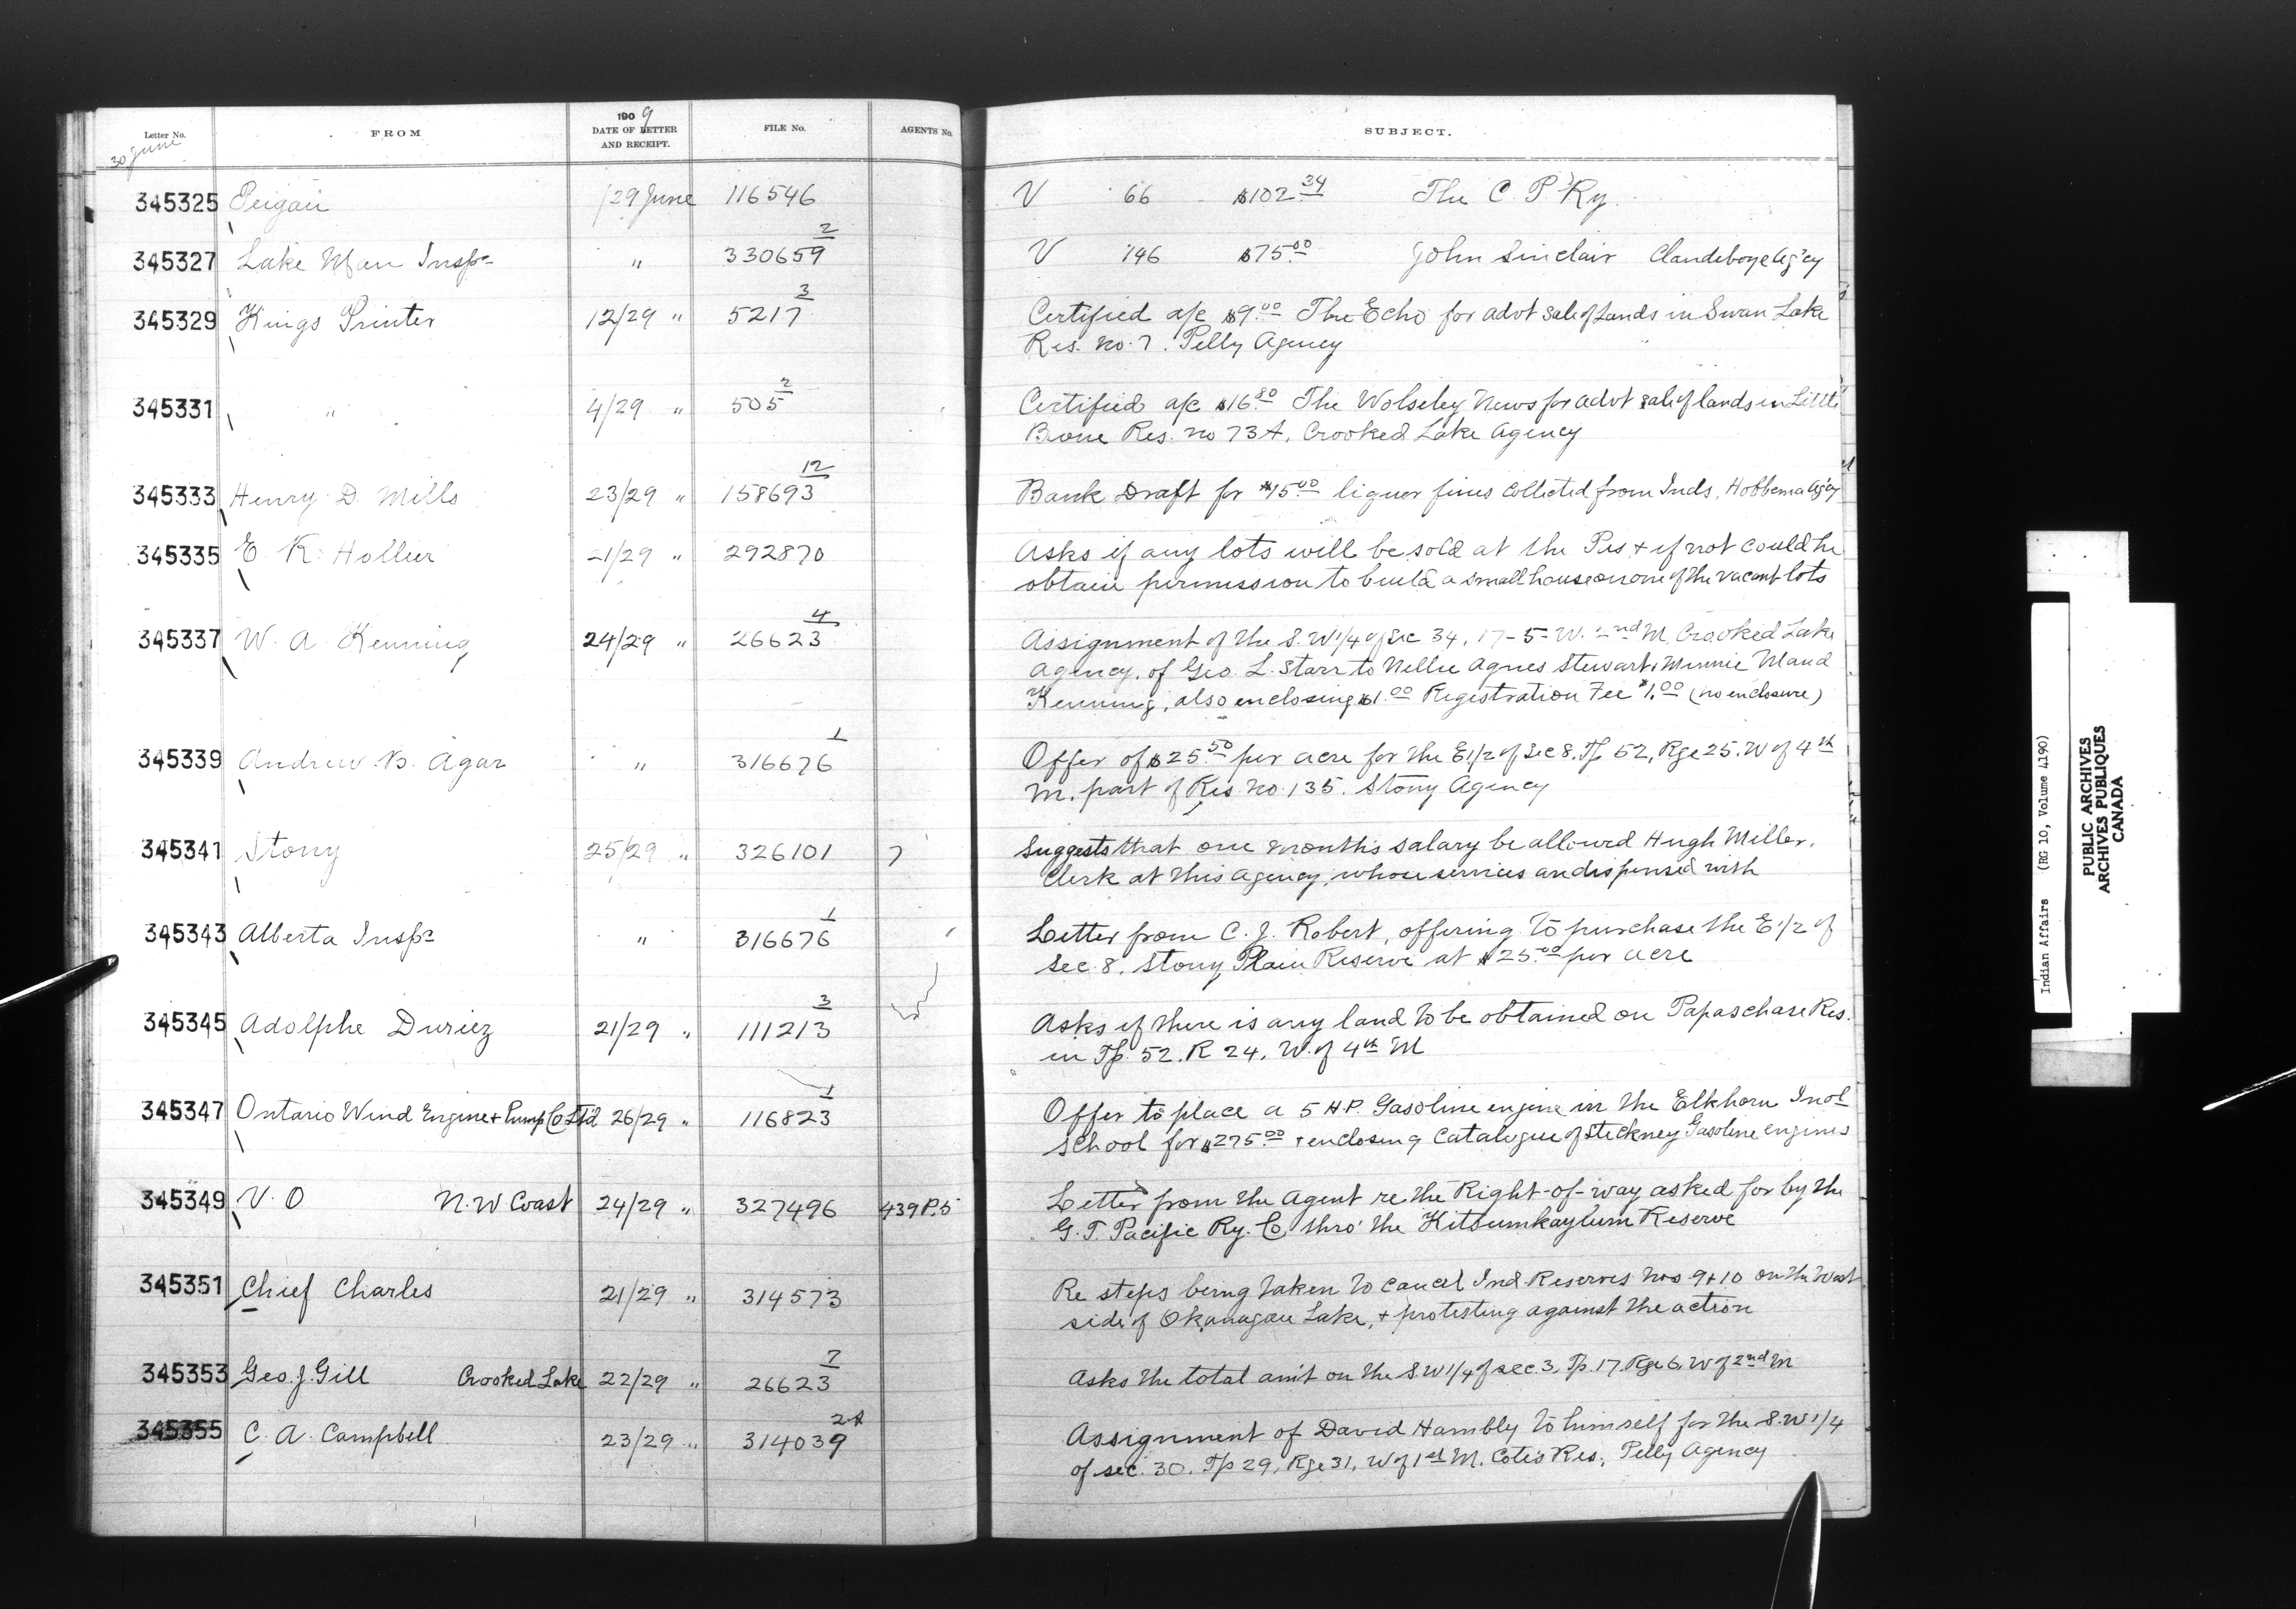 Letter No.
30 June
FROM
1909
DATE OF LETTER
AND RECEIPT.
FILE No.
AGENTS No.
SUBJECT.
345325 Peigan /29 June 116546 V 66 $102.34 The C. P. Ry.
345327 Lake Man Inspr " 330659 2 V 146 $75.00 John Sinclair Clandeboye Ag'cy
345329 Kings Printer 12/29 " 5217 3 Certified a/c $9.00 The Echo for advt sale of Lands in Swan Lake
Res. No. 7. Pelly Agency
345331 " 4/29 " 505 2 Certified a/c $16.80 The Wolseley News for advt sale of lands in Little
Bone Res. no 73A, Crooked Lake Agency
345333 Henry D. Mills 23/29 " 158693 12 Bank Draft for $15.00 liquor fines collected from Inds, Hobbema Ag'cy
345335 E. R. Hollier 21/29 " 292870 Asks if any lots will be sold at the Pas + if not could he
obtain permission to build a small house on one of the vacant lots
345337 W. A. Kenning 24/29 " 26623 4 Assignment of the S.W 1/4 of Sec 34, 17-5-W. 2nd M, Crooked Lake
Agency, of Geo. L. Starr to Nellie Agnes Stewart + Minnie Maud
Kenning, also enclosing $1.00 Registration Fee $1.00 (no enclosure)
345339 Andrew B. Agar " 316676 1 Offer of $25.50 per acre for the E 1/2 of Sec 8, Tp 52, Rge 25. W of 4th
M. part of Res. no. 135. Stony Agency
345341 Stony 25/29 " 326101 7 Suggests that one months salary be allowed Hugh Miller,
Clerk at this agency, whose services are dispensed with
345343 Alberta Inspr " 316676 1 Letter from C. J. Robert, offering to purchase the E 1/2 of
Sec. 8. Stony Plain Reserve at $25.00 per acre
345345 Adolphe Duriez 21/29 " 111213 3 Asks if there is any land to be obtained on Papaschase Res.
in Tp. 52. R 24. W. of 4th M
345347 Ontario Wind Engine + Pump Co Ltd 26/29 " 116823 1 Offer to place a 5 H.P. Gasoline engine in the Elkhorn Indl
School for $275.00 + enclosing Catalogue of Stickney Gasoline engines
345349 V. O N. W Coast 24/29 " 327496 439 P.5 Letter from the Agent re the Right-of-way asked for by the
G. T. Pacific Ry. Co. thro' the Kitsumkaylum Reserve
345351 Chief Charles 21/29 " 314573 Re steps being taken to cancel Ind. Reserves Nos 9 + 10 on the West
side of Okanagan Lake, + protesting against the action
345353 Geo. J. Gill Crooked Lake 22/29 " 26623 7 Asks the total am't on the S.W 1/4 of sec. 3. Tp. 17. Rge 6. W of 2nd M
345355 C. A. Campbell 23/29 " 314039 2A Assignment of David Hambly to himself for the S.W 1/4
of sec. 30. Tp 29, Rge 31, W of 1st M. Cote's Res., Pelly Agency
Indian Affairs (RG 10, Volume 4190)
PUBLIC ARCHIVES
ARCHIVES PUBLIQUES
CANADA